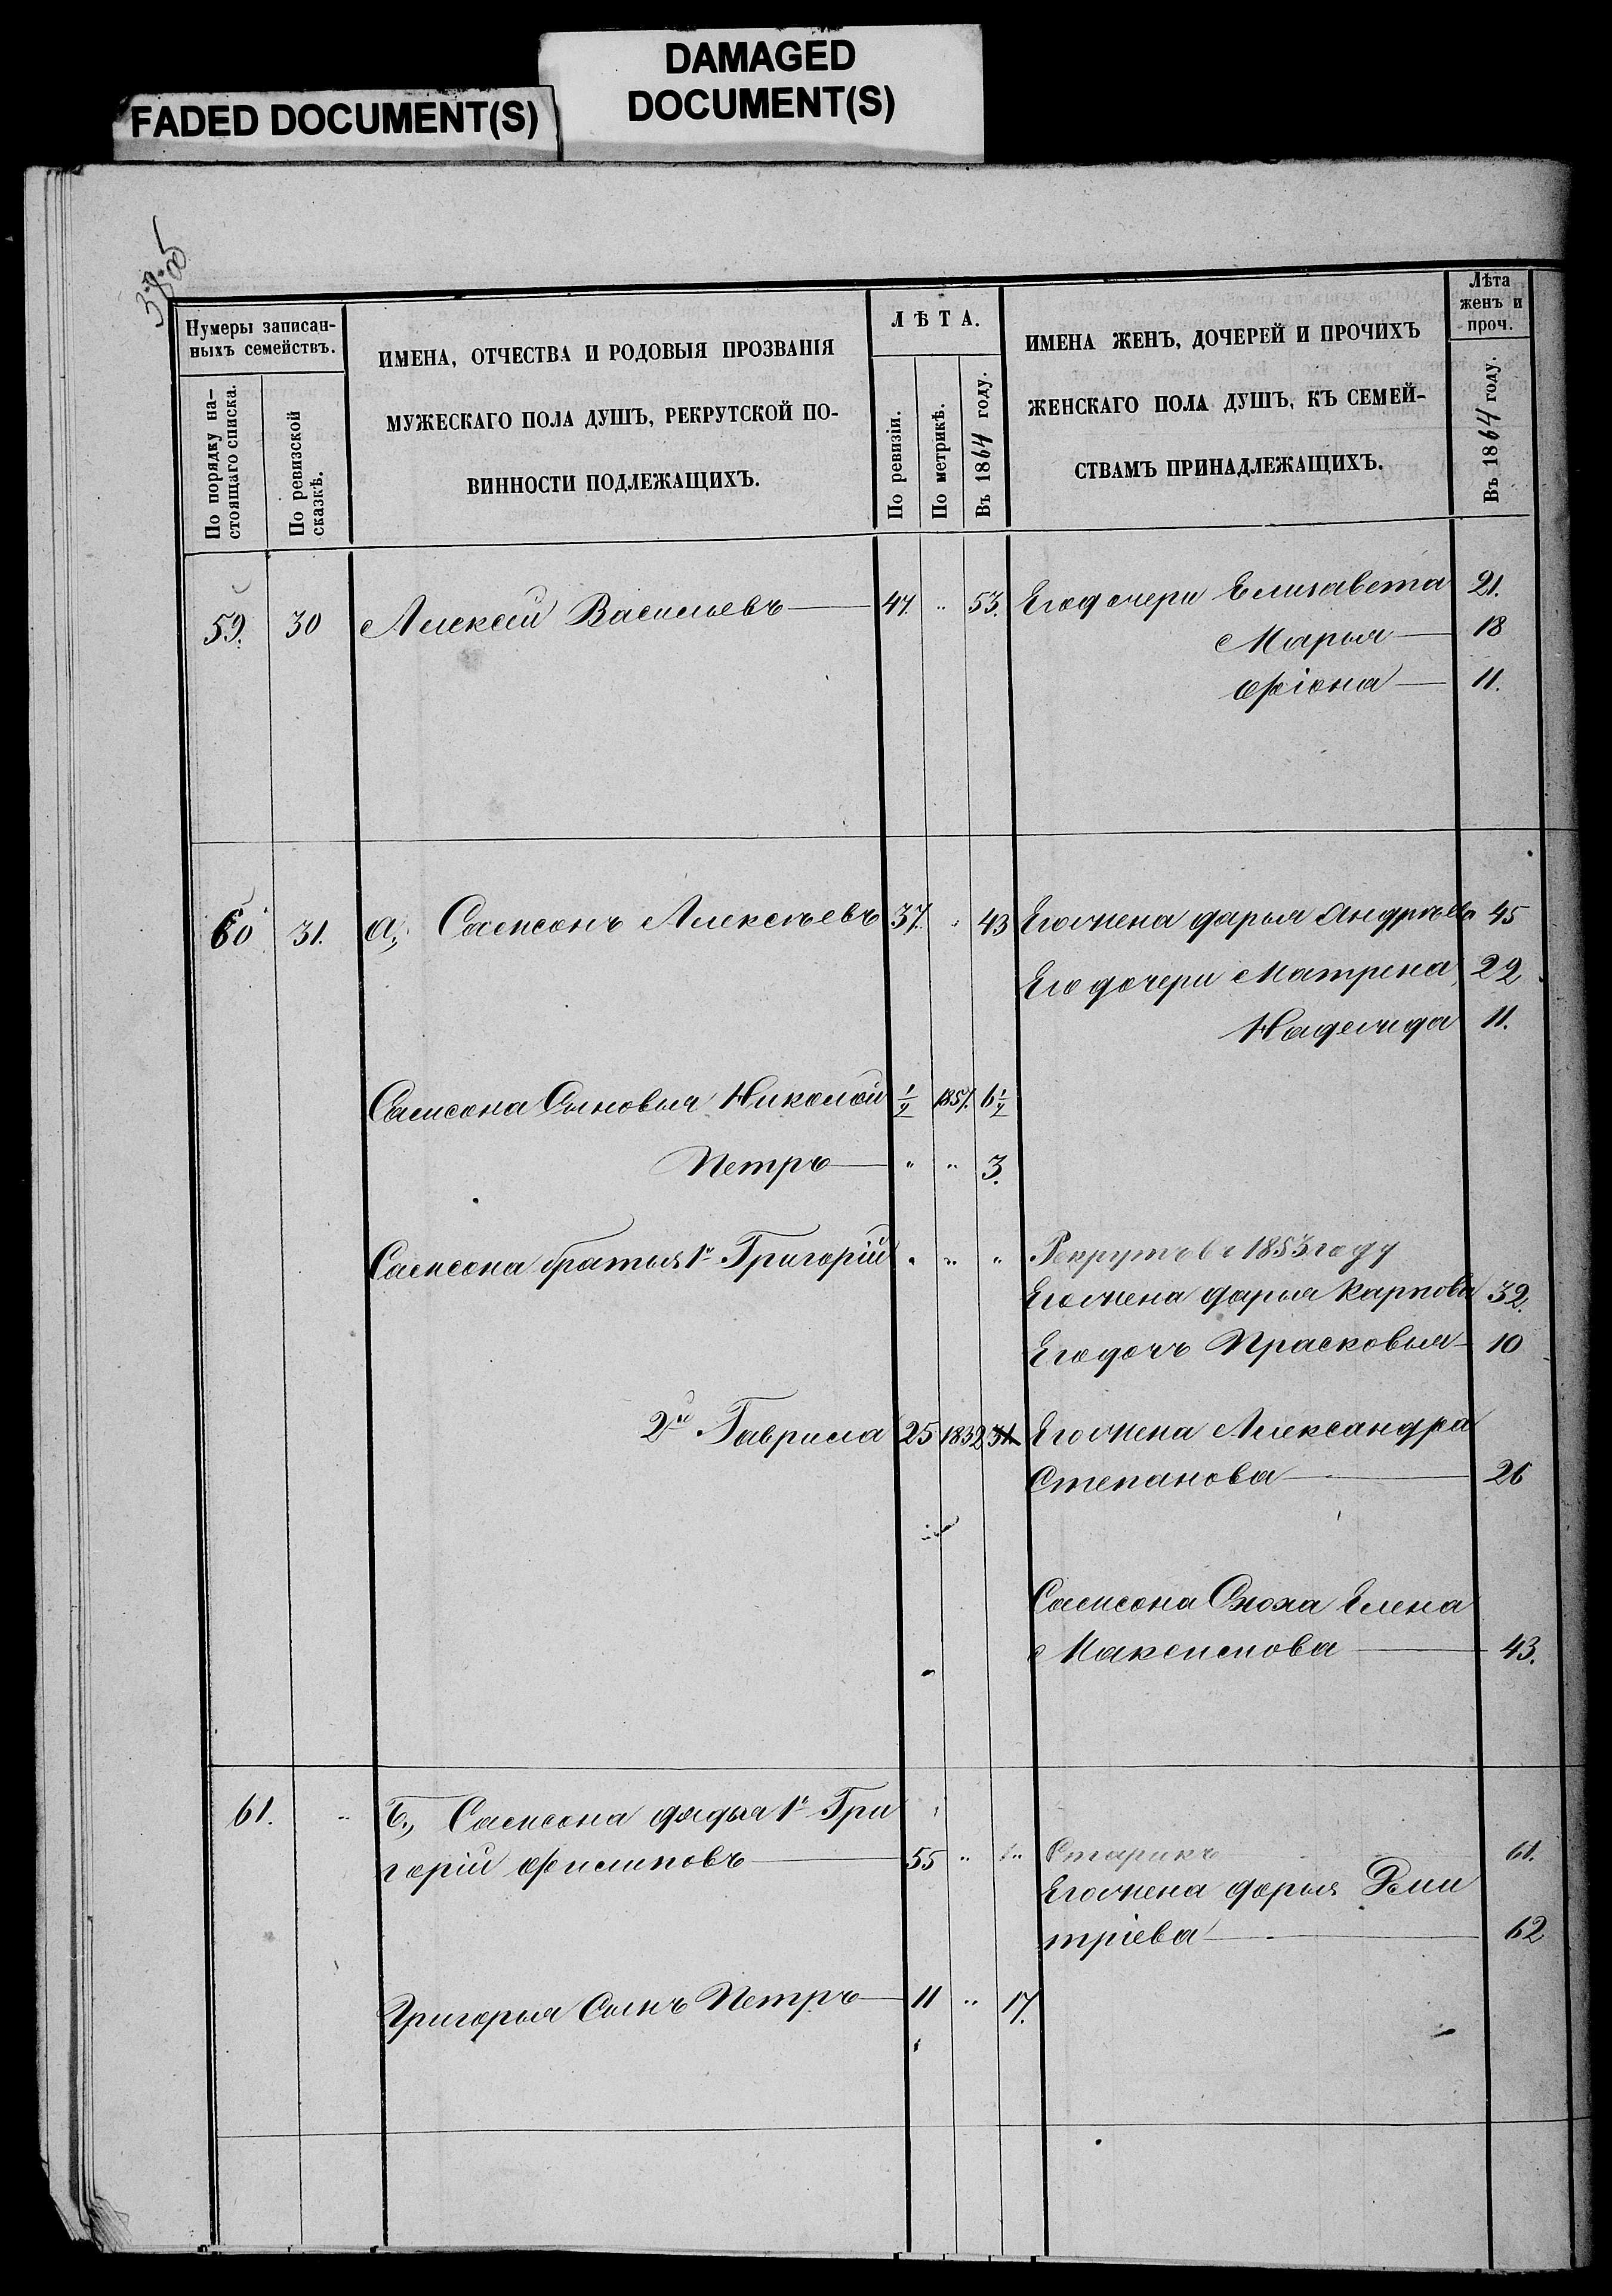 FADED DOCUMENT(S)
DAMAGED
DOCUMENT(S)
Нумеры записан-
ныхъ семействъ.
По порядку на-
стоящаго списка.
По ревизской
сказкѣ.
ИМЕНА, ОТЧЕСТВА И РОДОВЫЯ ПРОЗВАНІЯ
МУЖЕСКАГО ПОЛА ДУШЪ, РЕКРУТСКОЙ ПО-
ВИННОСТИ ПОДЛЕЖАЩИХЪ.
ЛѢТА.
По ревизіи.
По метрикѣ.
Въ 1864 году.
ИМЕНА ЖЕНЪ, ДОЧЕРЕЙ И ПРОЧИХЪ
ЖЕНСКАГО ПОЛА ДУШЪ, КЪ СЕМЕЙ-
СТВАМЪ ПРИНАДЛЕЖАЩИХЪ.
Лѣта
женъ и
проч.
Въ 1864 году.
59. 30 Алексѣй Васильевъ 47. " 53. Его дочери Елизавета 21.
Марья 18
Фіона 11.
60 31. а, Самсонъ Алексѣевъ 37. " 43 Его жена Дарья Андрѣева 45
Его дочери Матрена 22
Надежда 11.
Самсона Сыновья Николай ½ 1857. 6½
Петръ " " 3.
Самсона братья 1й Григорій " " " Рекрутъ въ 1853 году
Его жена Дарья Карпова 32.
Его дочь Прасковья 10
2й Гаврила 25 1832 31. Его жена Александра
Степанова 26
Самсона Сноха Елена
Максимова 43.
61. " б, Самсона дядья 1й Гри
горій Филиповъ 55 " " Старикъ 61.
Его жена Дарья Дми
тріева 62
Григорья Сынъ Петръ 11 " 17.